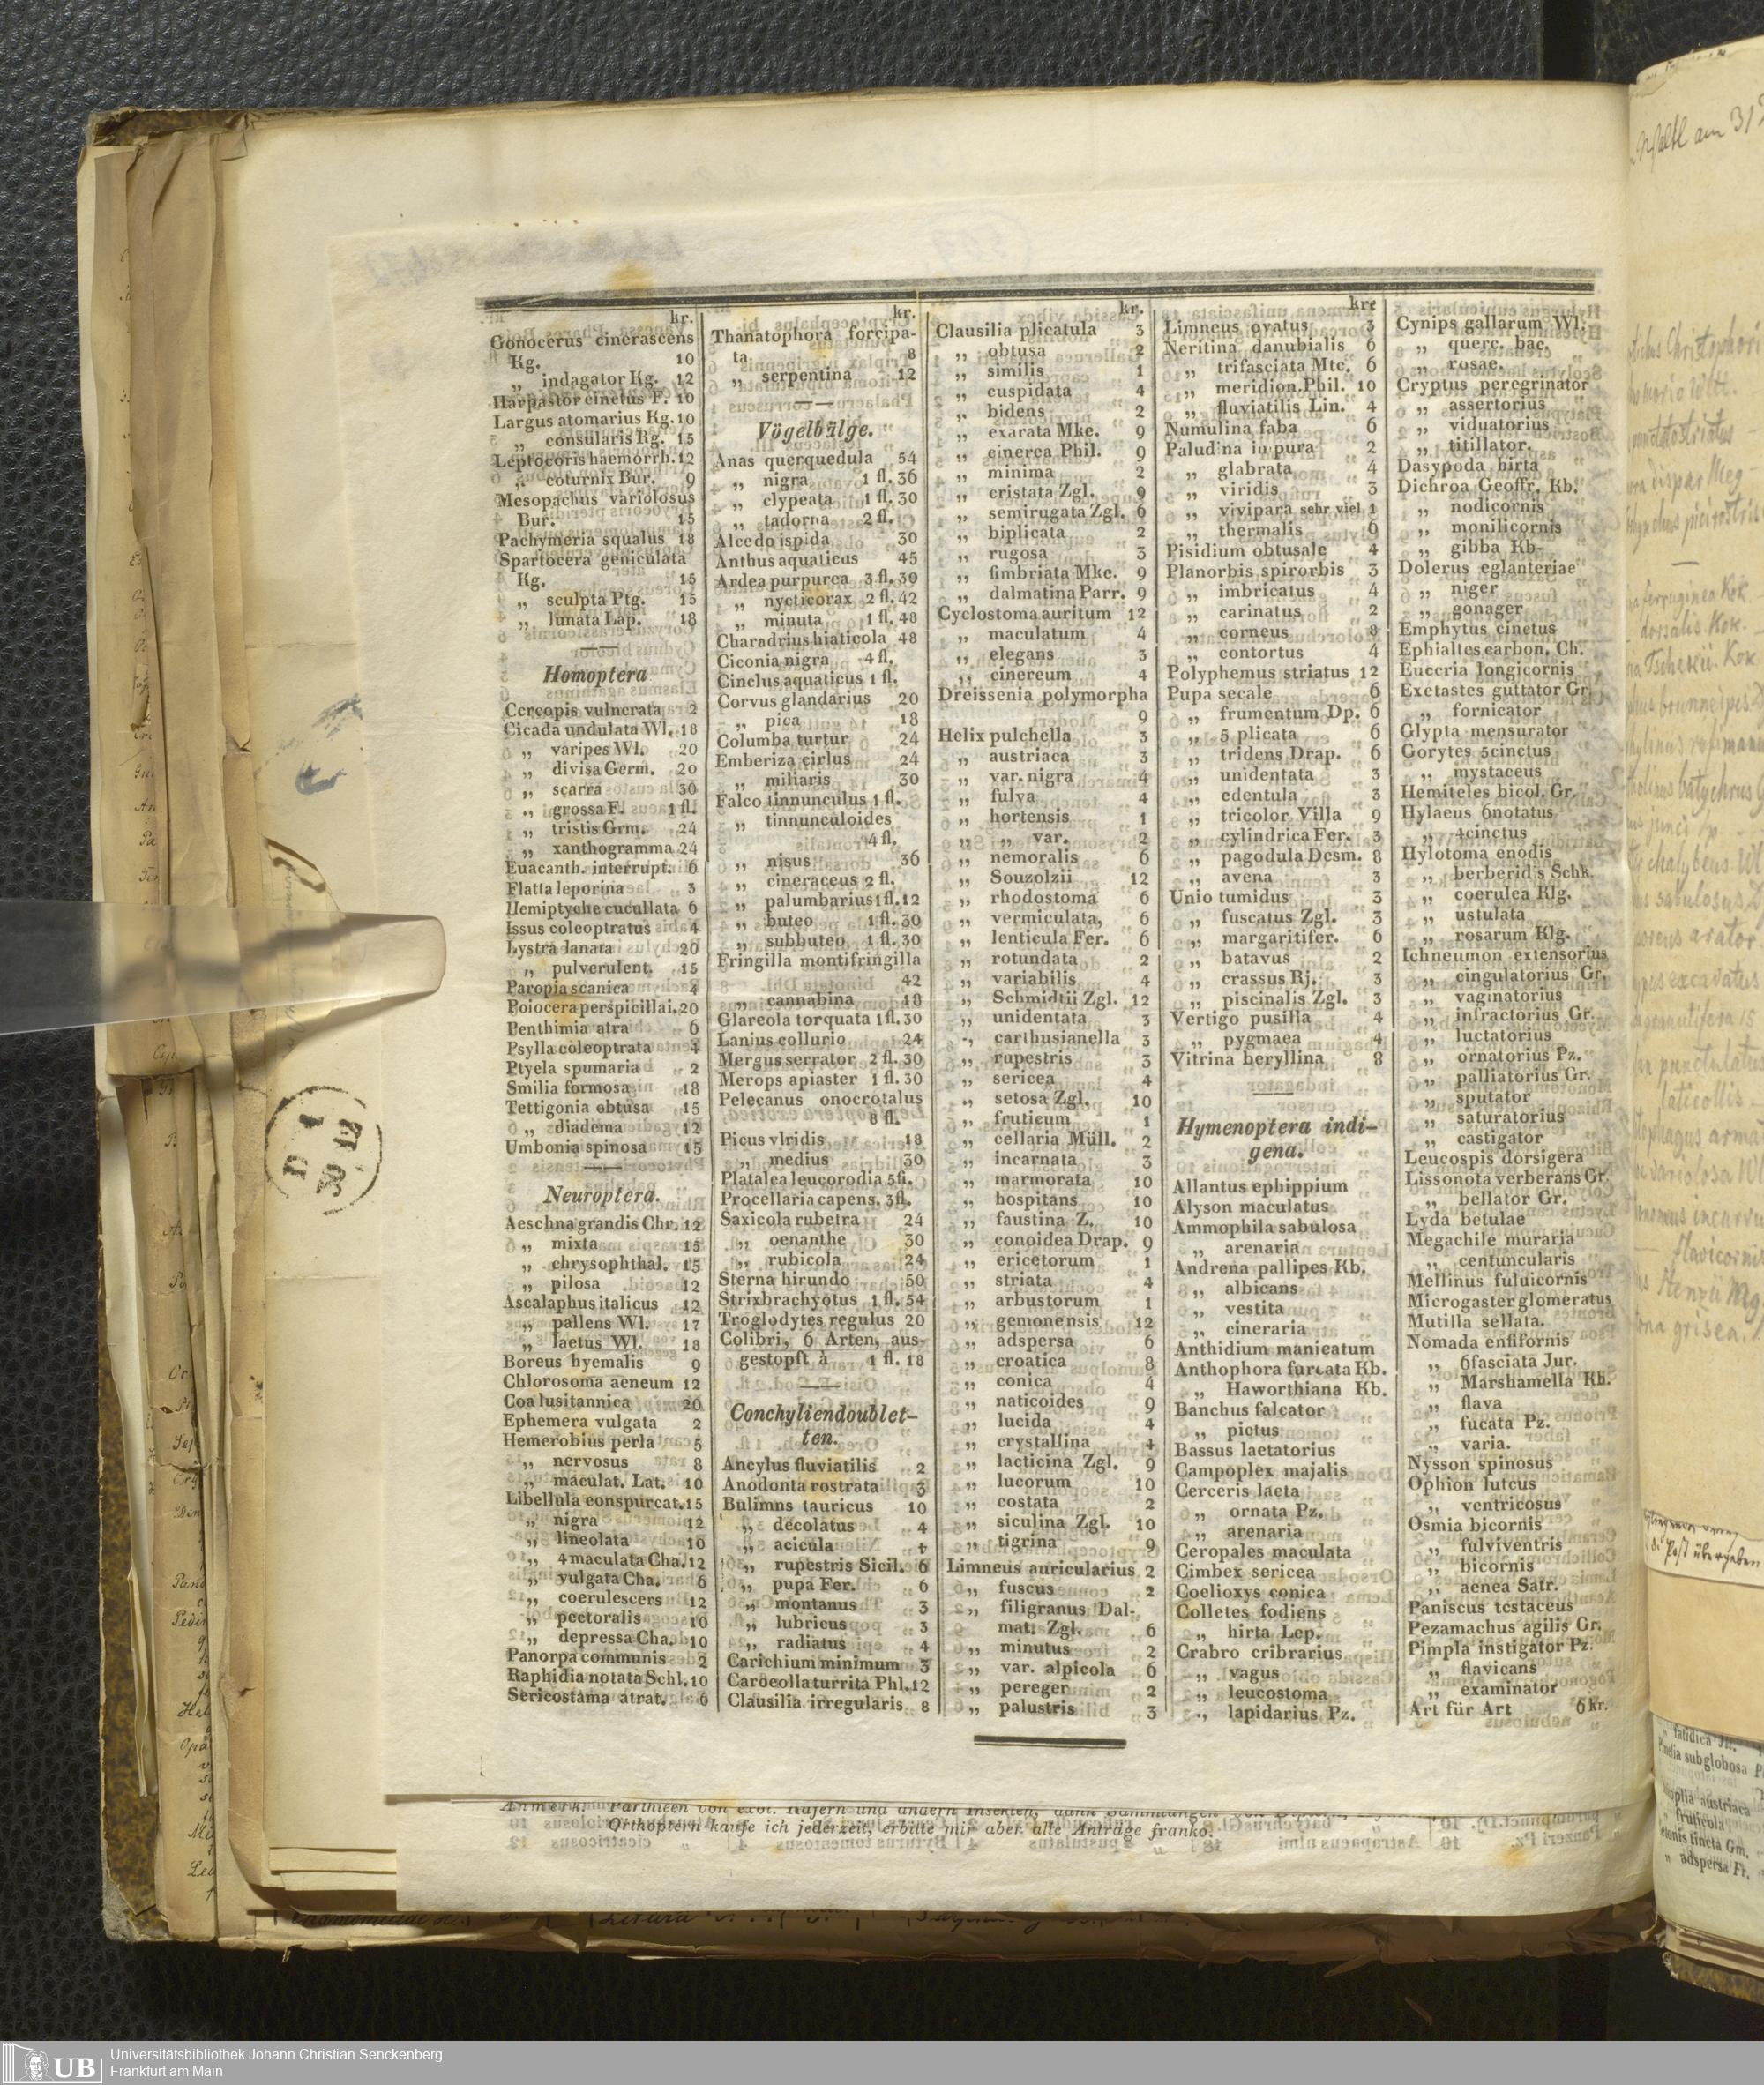 kr.
Gonocerus cinerascens
Kg. 10
„ indagator Kg. 12
Harpastor cinctus F. 10
Largus atomarius Kg. 10
„ consularis Rg. 15
Leptocoris haemorrh. 12
„ coturnix Bur. 9
Mesopachus variolosus
Bur. 15
Pachymeria squalus 18
Spartocera geniculata
Kg. 15
„ sculpta Ptg. 15
„ lunata Lap. 18
Homoptera
Cercopis vulnerata 2
Cicada undulata Wl. 18
„ varipes Wl. 20
„ divisa Germ. 20
„ scarra 30
„ grossa F. 1 fl.
„ tristis Grm. 24
„ xanthogramma 24
Euacanth. interrupt. 6
Flatta leporina 3
Hemiptyche cucullata 6
Issus coleoptratus 4
Lystra lanata 20
„ pulverulent. 15
Paropia scanica 4
Poiocera perspicillai. 20
Penthimia atra 6
Psylla coleoptrata 4
Ptyela spumaria 2
Smilia formosa 18
Tettigonia obtusa 15
„ diadema 12
Umbonia spinosa 15
Neuroptera.
Aeschna grandis Chr. 12
„ mixta 15
„ chrysophthal. 15
„ pilosa 12
Ascalaphus italicus 12
„ pallens Wl. 17
„ laetus Wl. 18
Boreus hyemalis 9
Chlorosoma aeneum 12
Coa lusitannica 20
Ephemera vulgata 2
Hemerobius perla 5
„ nervosus 8
„ maculat. Lat. 10
Libellula conspurcat. 15
„ nigra 12
„ lineolata 10
„ 4maculata Cha. 12
„ vulgata Cha. 6
„ coerulescers 12
„ pectoralis 10
„ depressa Cha. 10
Panorpa communis 2
Raphidia notata Schl. 10
Sericostama atrat. 6
kr.
Thanatophora forcipa-
ta 8
„ serpentina 12
Vögelbälge.
Anas querquedula 54
„ nigra 1 fl. 36
„ clypeata 1 fl. 30
„ tadorna 2 fl.
Alcedo ispida 30
Anthus aquaticus 45
Ardea purpurea 3 fl. 39
„ nycticorax 2 fl. 42
„ minuta 1 fl. 48
Charadrius hiaticola 48
Ciconia nigra 4 fl.
Cinclus aquaticus 1 fl.
Corvus glandarius 20
„ pica 18
Columba turtur 24
Emberiza cirlus 24
„ miliaris 30
Falco tinnunculus 1 fl.
„ tinnunculoides
4 fl.
„ nisus 36
„ cineraceus 2 fl.
„ palumbarius 1 fl. 12
„ buteo 1 fl. 30
„ subbuteo 1 fl. 30
Fringilla montifringilla
42
„ cannabina 18
Glareola torquata 1 fl. 30
Lanius collurio 24
Mergus serrator 2 fl. 30
Merops apiaster 1 fl. 30
Pelecanus onocrotalus
8 fl.
Picus viridis 18
„ medius 30
Platalea leucorodia 5 fi.
Procellaria capens. 3 fl.
Saxicola rubetra 24
„ oenanthe 30
„ rubicola 24
Sterna hirundo 50
Strix brachyotus 1 fl. 54
Troglodytes regulus 20
Colibri, 6 Arten, aus-
gestopft à 1 fl. 18
Conchyliendoublet-
ten.
Ancylus fluviatilis 2
Anodonta rostrata 3
Bulimns tauricus 10
„ decolatus 4
„ acicula
„ rupestris Sicil. 6
„ pupa Fer. 6
„ montanus 3
„ lubricus 3
„ radiatus 4
Carichium minimum 3
Carocolla turrita Phl. 12
Clausilia irregularis 8
kr.
Clausilia plicatula 3
„ obtusa 2
„ similis 1
„ cuspidata 4
„ bidens 2
„ exarata Mke. 9
„ cinerea Phil. 9
„ minima 2
„ cristata Zgl. 9
„ semirugata Zgl. 6
„ biplicata 2
„ rugosa 3
„ fimbriata Mke. 9
„ dalmatina Parr. 9
Cyclostoma auritum 12
„ maculatum 4
„ elegans 3
„ cinereum 4
Dreissenia polymorpha
9
Helix pulchella 3
„ austriaca 3
„ var. nigra 4
„ fulva 4
„ hortensis 1
„ „ var. 2
„ nemoralis 6
„ Souzolzii 12
„ rhodostoma 6
„ vermiculata, 6
„ lenticula Fer. 6
„ rotundata 2
„ variabilis 4
„ Schmidtii Zgl. 12
„ unidentata 3
„ carthusianella 3
„ rupestris 3
„ sericea 4
„ setosa Zgl. 10
„ fruticum 1
„ cellaria Müll. 2
„ incarnata 3
„ marmorata 10
„ hospitans 10
„ faustina Z. 10
„ conoidea Drap. 9
„ ericetorum 1
„ striata 4
„ arbustorum 1
„ gemonensis 12
„ adspersa 6
„ croatica 8
„ conica 4
„ naticoides 9
„ lucida 4
„ crystallina 4
„ lacticina Zgl. 9
„ lucorum 10
„ costata 2
„ siculina Zgl. 10
„ tigrina 9
Limneus auricularius 2
„ fuscus 2
„ filigranus Dal-
mat. Zgl. 6
„ minutus 2
„ var. alpicola 6
„ pereger 2
„ palustris 3
kre
Limneus ovatus 3
Neritina danubialis 6
„ trifasciata Mtc. 6
„ meridion. Phil. 10
„ fluviatilis Lin. 4
Numulina faba 6
Paludina impura 2
„ glabrata 4
„ viridis 3
„ vivipara sehr viel 1
„ thermalis 6
Pisidium obtusale 4
Planorbis spirorbis 3
„ imbricatus 4
„ carinatus 2
„ corneus 8
„ contortus 4
Polyphemus striatus 12
Pupa secale 6
„ frumentum Dp. 6
„ 5 plicata 6
„ tridens Drap. 6
„ unidentata 3
„ edentula 3
„ tricolor Villa 9
„ cylindrica Fer. 3
„ pagodula Desm. 8
„ avena 3
Unio tumidus 3
„ fuscatus Zgl. 3
„ margaritifer. 6
„ batavus 2
„ crassus Rj. 3
„ piscinalis Zgl. 3
Vertigo pusilla 4
„ pygmaea 4
Vitrina beryllina 8
Hymenoptera indi-
gena.
Allantus ephippium
Alyson maculatus
Ammophila sabulosa
„ arenaria
Andrena pallipes Kb.
„ albicans
„ vestita
„ cineraria
Anthidium manicatum
Anthophora furcata Kb.
„ Haworthiana Kb.
Banchus falcator
„ pictus
Bassus laetatorius
Campoplex majalis
Cerceris laeta
„ ornata Pz.
„ arenaria
Ceropales maculata
Cimbex sericea
Coelioxys conica
Colletes fodiens
„ hirta Lep.
Crabro cribrarius
„ vagus
„ leucostoma
„ lapidarius Pz.
Cynips gallarum Wl.
„ querc. bac.
„ rosae
Cryptus peregrinator
„ assertorius
„ viduatorius
„ titillator.
Dasypoda hirta
Dichroa Geoffr. Kb.
„ nodicornis
„ monilicornis
„ gibba Kb-
Dolerus eglanteriae
„ niger
„ gonager
Emphytus cinctus
Ephialtes carbon. Ch.
Euceria longicornis
Exetastes guttator Gr.
„ fornicator
Glypta mensurator
Gorytes 5cinctus
„ mystaceus
Hemiteles bicol. Gr.
Hylaeus 6notatus
„ 4cinctus
Hylotoma enodis
„ berberid's Schk.
„ coerulea Klg.
„ ustulata
„ rosarum Klg.
Ichneumon extensorius
„ cingulatorius Gr.
„ vaginatorius
„ infractorius Gr.
„ luctatorius
„ ornatorius Pz.
„ palliatorius Gr.
„ sputator
„ saturatorius
„ castigator
Leucospis dorsigera
Lissonota verberans Gr.
„ bellator Gr.
Lyda betulae
Megachile muraria
„ centuncularis
Mellinus fuluicornis
Microgaster glomeratus
Mutilla sellata.
Nomada enfifornis
„ 6fasciata Jur.
„ Marshamella Kb.
„ flava
„ fucata Pz.
„ varia.
Nysson spinosus
Ophion luteus
„ ventricosus
Osmia bicornis
„ fulviventris
„ bicornis
„ aenea Satr.
Paniscus testaceus
Pezamachus agilis Gr.
Pimpla instigator Pz.
„ flavicans
„ examinator
Art für Art 6 kr.
Anmerk. Parthieen von exot. Käfern und andern Insekten, dann Sammlungen von
Orthoptern kaufe ich jederzeit, erbitte mir aber alle Anträge franko.
am 31
Post übergeben
fatidica
subglobosa
austriaca
fruticola
adspersa Fr.
UB
Universitätsbibliothek Johann Christian Senckenberg
Frankfurt am Main